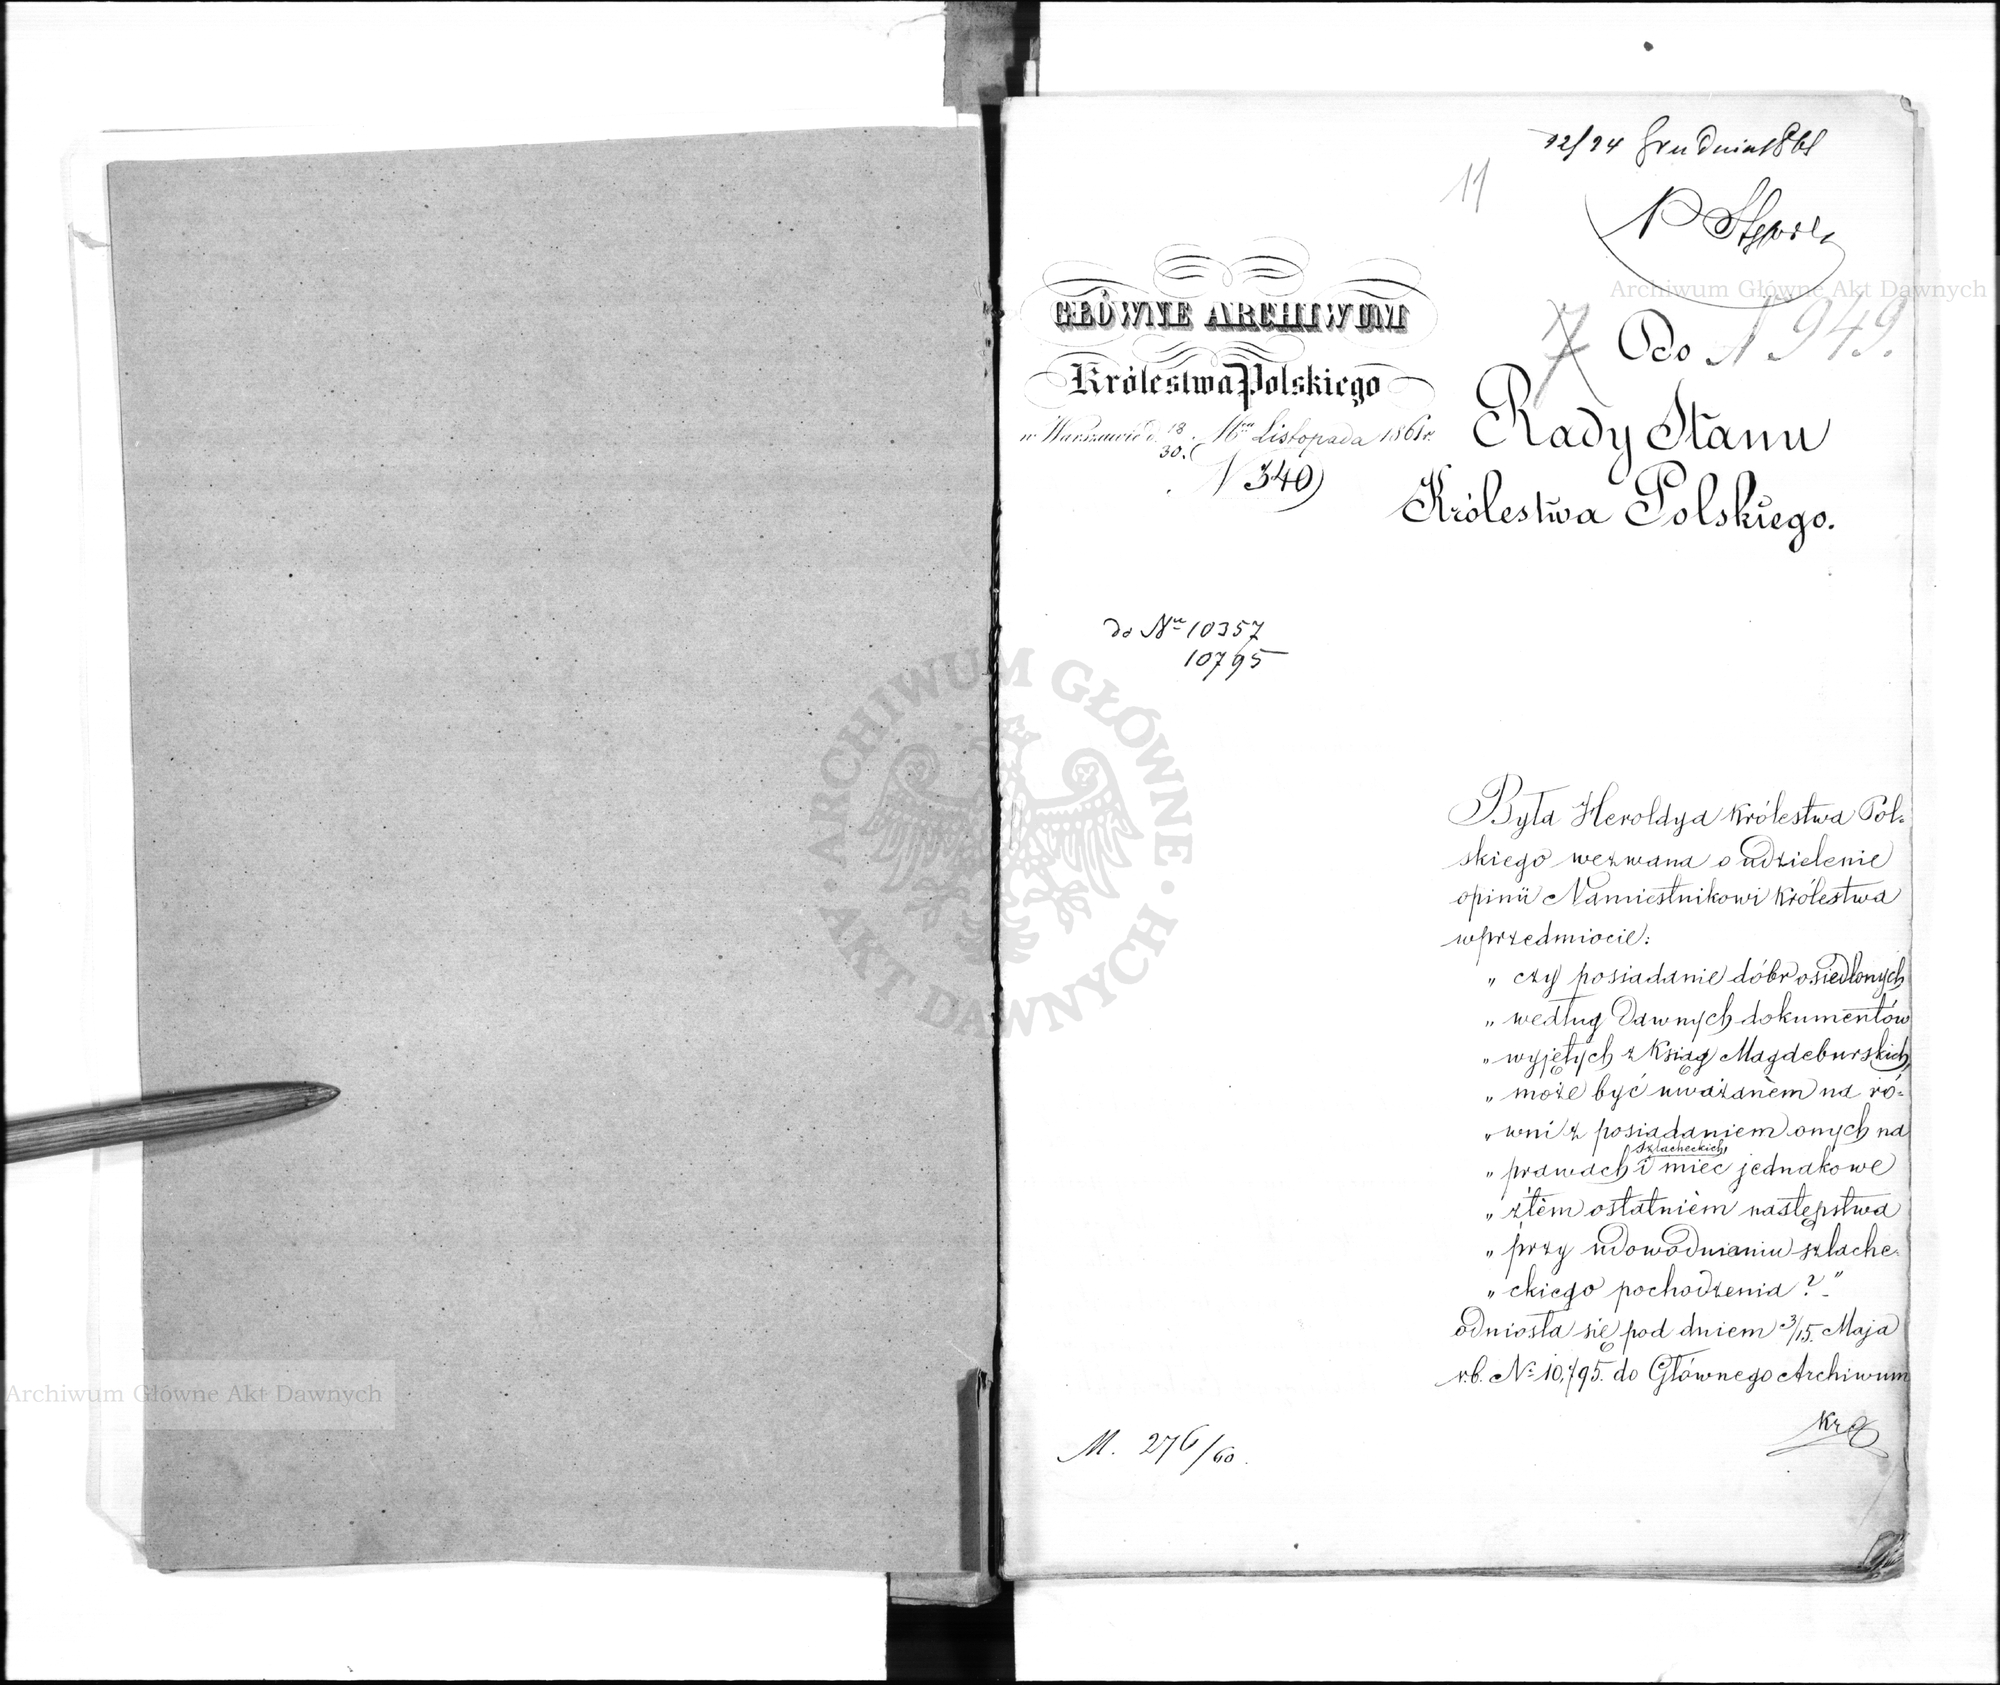 12/24 Grudnia 1861
11
GŁÓWNE ARCHIWUM
Królestwa Polskiego
w Warszawie d. 18/30. Mca Listopada 1861 r.
N 340
7
N 949.
Do
Rady Stanu
Królestwa Polskiego.
do Nru 10357
10795
Była Heroldya Królestwa Pol-
skiego wezwana o udzielenie
opinii Namiestnikowi Królestwa
w przedmiocie:
„ czy posiadanie dóbr osiedlonych
„ według dawnych dokumentów
„ wyjętych z Ksiąg Magdeburskich,
„ może być uważanem na ró-
„ wni z posiadaniem onych na
„ prawach szlacheckich i mieć jednakowe
„ z tém ostatniém następstwa
„ przy udowodnianiu szlache-
„ ckiego pochodzenia?"
odniosła się pod dniem 3/15. Maja
r.b. No 10,795. do Głównego Archiwum
M. 276/60.
Archiwum Główne Akt Dawnych
Archiwum Główne Akt Dawnych
ARCHIWUM GŁÓWNE
AKT DAWNYCH